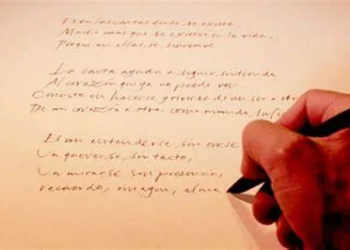 son las cartas donde se
Mucho mas que se en la vida,
Porque en ellas, se
La carta ayuda a seguir sintiendo
Al corazón que ya no puede ver
en hacerse de un ser a otro
De un corazón a otro, como manda,
Es un entenderse, sin oirse
Un quererse, sin tacto,
Un mirarse, sin presencia,
recuerdo, imagen, alma